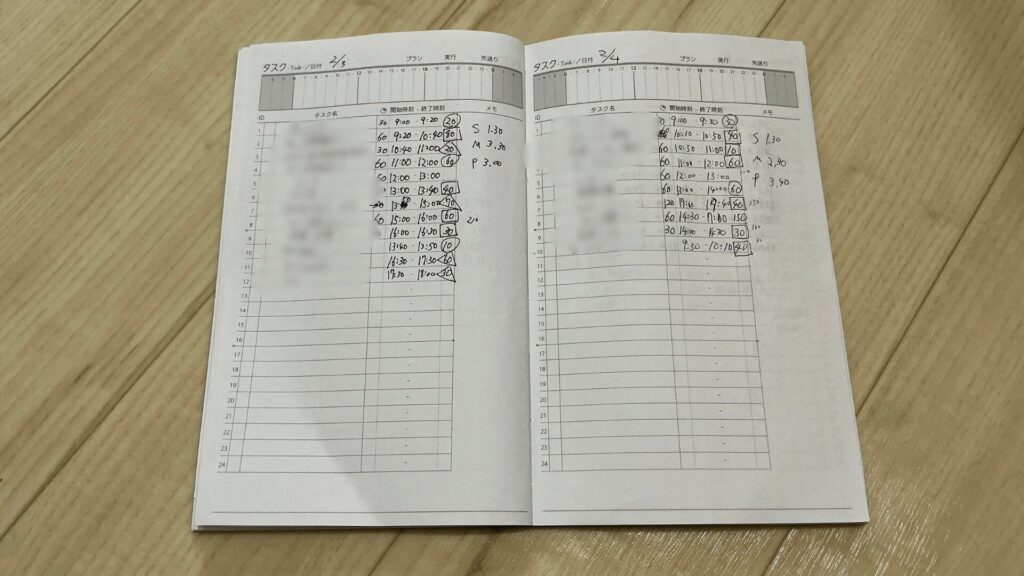 タスク -Task-／日付 2/3 プラン 実行 先送り
ID タスク名 開始時刻 - 終了時刻 メモ
1 30 9:00 - 9:20 20
2 60 9:20 - 10:40 80 S 1.30
3 30 10:40 11:00 20 M 3.30
4 60 11:00 - 12:00 60 P 3.00
5 12:00 - 13:00
6 13:00 - 13:40 40
7 15:00
8 15:00 - 16:00 60
9 16:00 - 16:30 30
10 13:40 - 13:50 10
11 16:30 - 17:30 60
12 17:30 - 18:00 30
13
14
15
16
17
18
19
20
21
22
23
24
タスク -Task-／日付 2/4 プラン 実行 先送り
ID タスク名 開始時刻 - 終了時刻 メモ
1 9:00 - 9:30 30
2 10:10 - 10:50 40 S 1.30
3 60 10:50 - 11:00 10
4 60 11:00 - 12:00 60 M 2.30
5 60 12:00 - 13:00 P 3.40
6 60 13:00 - 14:00 60
7 120
8 60 14:30 - 17:00 150
9 30 14:00 - 14:30 30
10 9:30 - 10:10 40
11
12
13
14
15
16
17
18
19
20
21
22
23
24